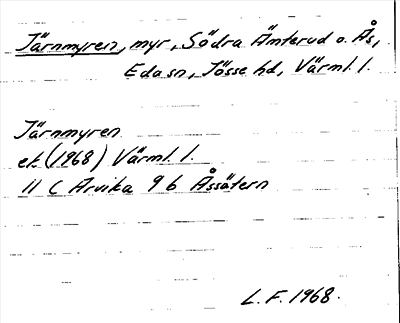 Järnmyren, myr, Södra Ämterud o. Ås,
Eda sn, Jösse hd, Värml. l.
Järnmyren
ek (1968) Värml. l.
11 C Arvika 9 b Åssätern
L. F. 1968.